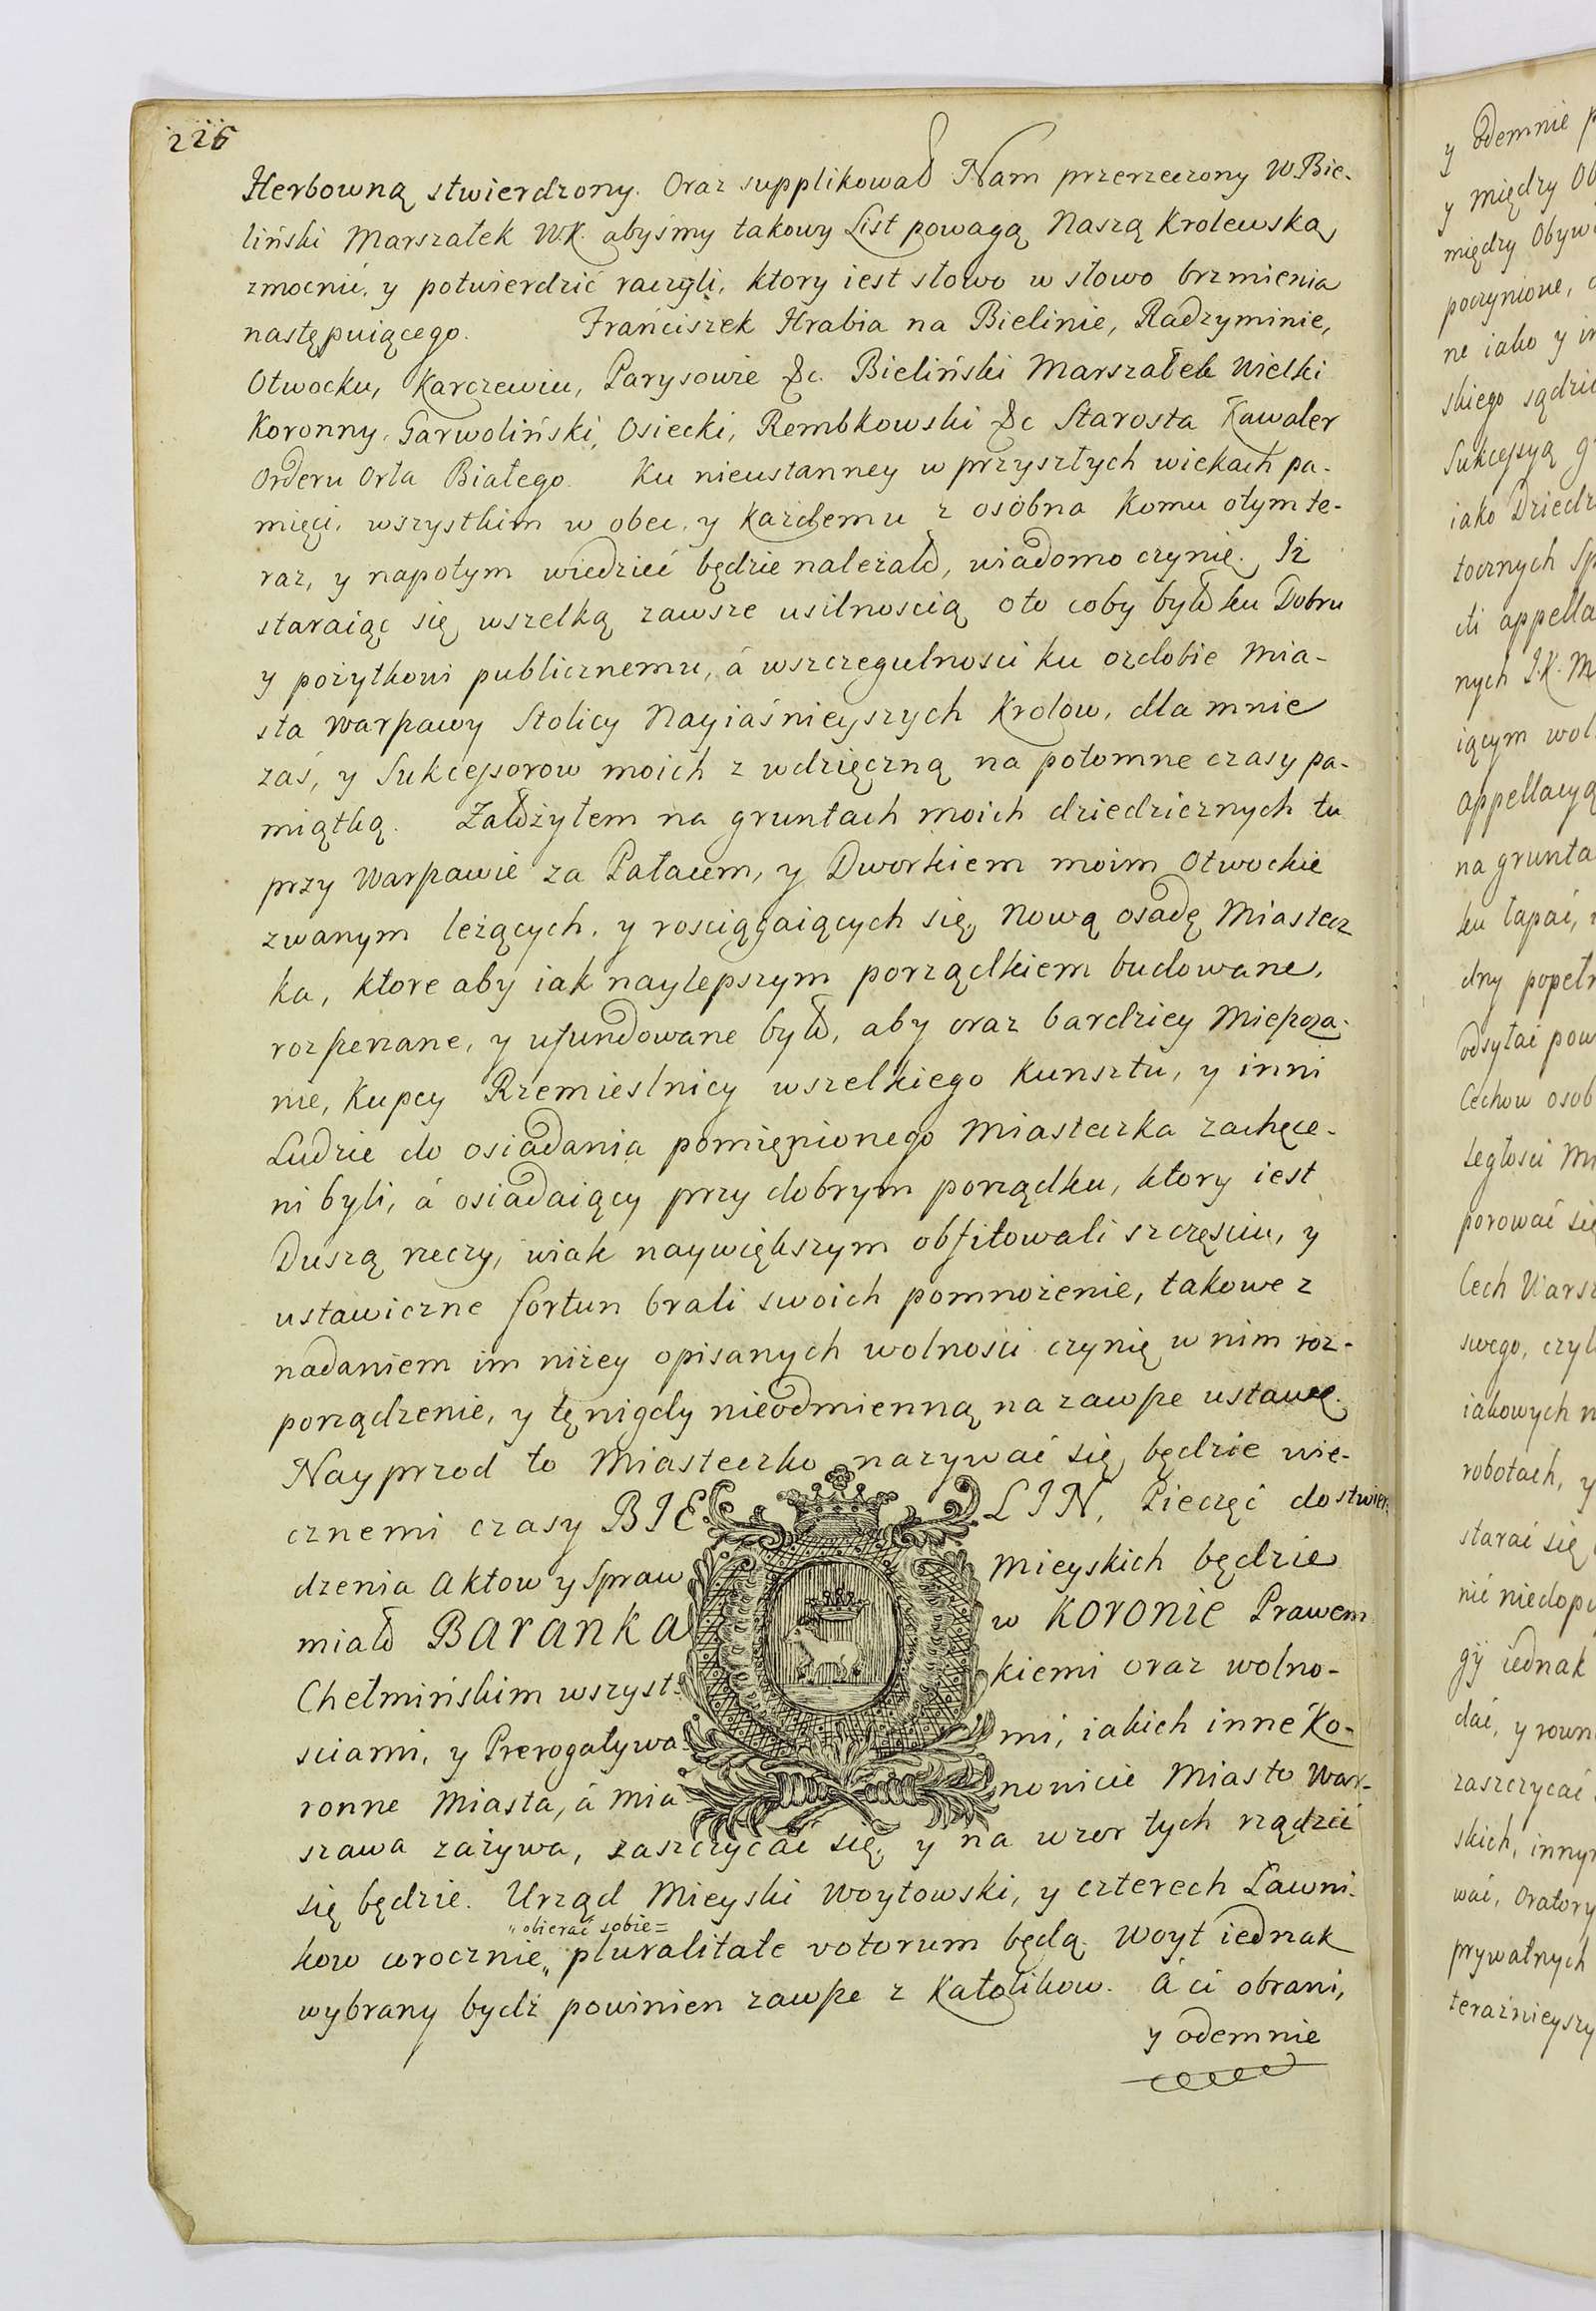 226
Herbowną stwierdzony. Oraz supplikował Nam przerzeczony W. Bie-
liński Marszałek W.K. abyśmy takowy List powagą Naszą Krolewską
zmocnić, y potwierdzić raczyli, ktory iest słowo w słowo brzmienia
następuiącego. Franciszek Hrabia na Bielinie, Radzyminie,
Otwocku, Karczewiu, Parysowie &c. Bieliński Marszałek Wielki
Koronny, Garwoliński, Osiecki, Rembkowski &c Starosta Kawaler
Orderu Orła Białego. Ku nieustanney w przyszłych wiekach pa-
mięci, wszystkim w obec, y każdemu z osobna komu otym te-
raz, y napotym wiedzieć będzie należało, wiadomo czynię. Iż
staraiąc się wszelką zawsze usilnoscią oto coby było ku Dobru
y pożytkowi publicznemu, á wszczegulnosci ku ozdobie Mia-
sta Warszawy Stolicy Nayiaśnieyszych Krolow, dla mnie
zaś, y Sukcessorow moich z wdzięczną na potomne czasy pa-
miątką. Założyłem na gruntach moich dziedzicznych tu
przy Warszawie za Pałacem, y Dworkiem moim Otwockie
zwanym leżących, y rosciągaiących się, Nową osadę Miastecz
ka, ktore aby iak naylepszym porządkiem budowane,
rozszerzane, y ufundowane było, aby oraz bardziey Mieszcza-
nie, Kupcy Rzemieslnicy wszelkiego Kunsztu, y inni
Ludzie do osiadania pomienionego Miasteczka zachęce-
ni byli, á osiadaiący przy dobrym porządku, ktory iest
Duszą rzeczy, wiak naywiększym obfitowali szczęsciu, y
ustawiczne fortun brali swoich pomnożenie, takowe z
nadaniem im niżey opisanych wolności czynię w nim roz-
porządzenie, y tę nigdy nieodmienną na zawsze ustawę.
Nayprzod to Miasteczko nazywać się będzie wie-
cznemi czasy BIELIN, Pieczęć do stwier-
dzenia Aktow y Spraw Mieyskich będzie
miało Baranka w Koronie Prawem
Chełmińskim wszyst-kiemi oraz wolno-
sciami, y Prerogatywa-mi, iakich inne Ko-
ronne Miasta, á mia-nowicie Miasto War-
szawa zażywa, zaszczycać się, y na wzor tych rządzić
się będzie. Urząd Mieyski Woytowski, y czterech Ławni-
"obierać sobie=
kow corocznie„ pluralitate votorum będą. Woyt iednak
wybrany bydź powinien zawsze z Katolikow. á ci obrani,
y odemnie
y odemnie
y między
między
poczynione,
ne iako y
skiego
Sukcessyą
iako
tocznych
appella
nych J.K.
iącym
appellacyą
na grunta
ku łapać,
dny
odsyłać
Cechow
porować się
Cech
swego,
iakowych
robotach, y
starać się
nić
gÿ iednak
dać, y
zaszczycać
skich,
wać,
prywatnych